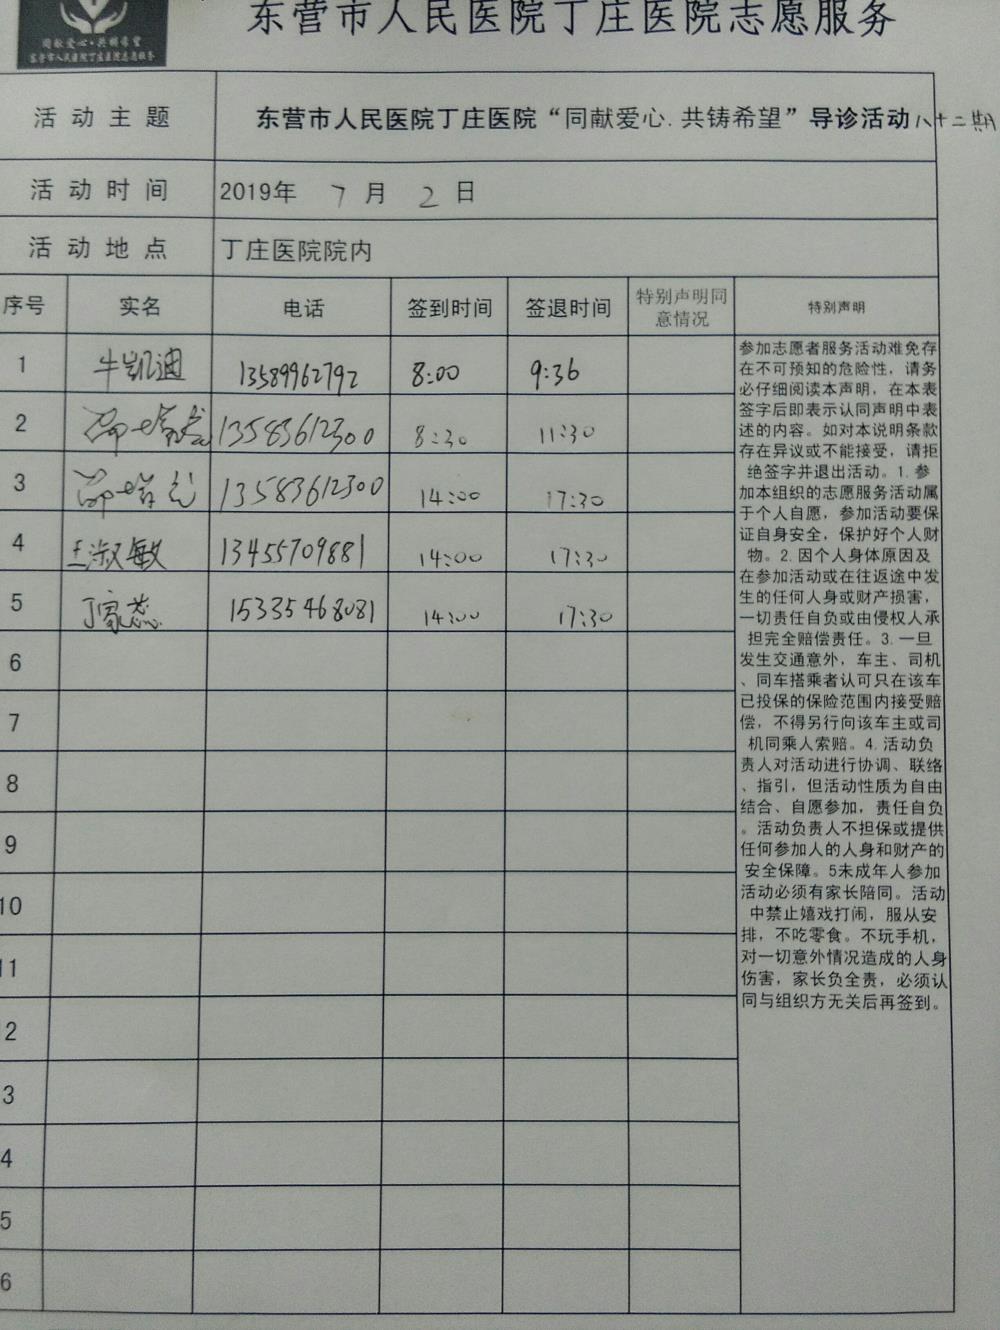 同献爱心·共铸希望
东营市人民医院丁庄医院志愿服务
东营市人民医院丁庄医院志愿服务
活动主题 东营市人民医院丁庄医院“同献爱心.共铸希望”导诊活动八十二期
活动时间 2019年 7 月 2 日
活动地点 丁庄医院院内
序号 实名 电话 签到时间 签退时间 特别声明同意情况 特别声明
1 牛凯迪 13589962792 8:00 9:36
2 13583612300 8:30 11:30
3 13583612300 14:00 17:30
4 王淑敏 13455709881 14:00 17:30
5 丁家蕊 15335468081 14:00 17:30
6
7
8
9
10
11
2
3
4
5
6
参加志愿者服务活动难免存
在不可预知的危险性，请务
必仔细阅读本声明，在本表
签字后即表示认同声明中表
述的内容。如对本说明条款
存在异议或不能接受，请拒
绝签字并退出活动。1.参
加本组织的志愿服务活动属
于个人自愿，参加活动要保
证自身安全，保护好个人财
物。2.因个人身体原因及
在参加活动或在往返途中发
生的任何人身或财产损害，
一切责任自负或由侵权人承
担完全赔偿责任。3.一旦
发生交通意外，车主、司机
、同车搭乘者认可只在该车
已投保的保险范围内接受赔
偿，不得另行向该车主或司
机同乘人索赔。4.活动负
责人对活动进行协调、联络
、指引，但活动性质为自由
结合、自愿参加，责任自负
。活动负责人不担保或提供
任何参加人的人身和财产的
安全保障。5未成年人参加
活动必须有家长陪同。活动
中禁止嬉戏打闹，服从安
排，不吃零食。不玩手机，
对一切意外情况造成的人身
伤害，家长负全责，必须认
同与组织方无关后再签到。